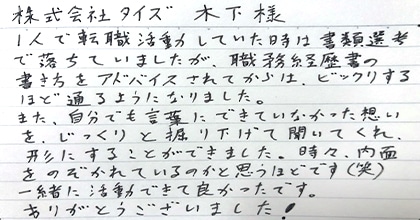 株式会社タイズ 木下様
1人で転職活動していた時は書類選考
で落ちていましたが、職務経歴書の
書き方をアドバイスされてからは、ビックリする
ほど通るようになりました。
また、自分でも言葉にできていなかった想い
を、じっくりと掘り下げて聞いてくれ、
形にすることができました。時々、内面
をのぞかれているのかと思うほどです(笑)
一緒に活動できて良かったです。
ありがとうございました!